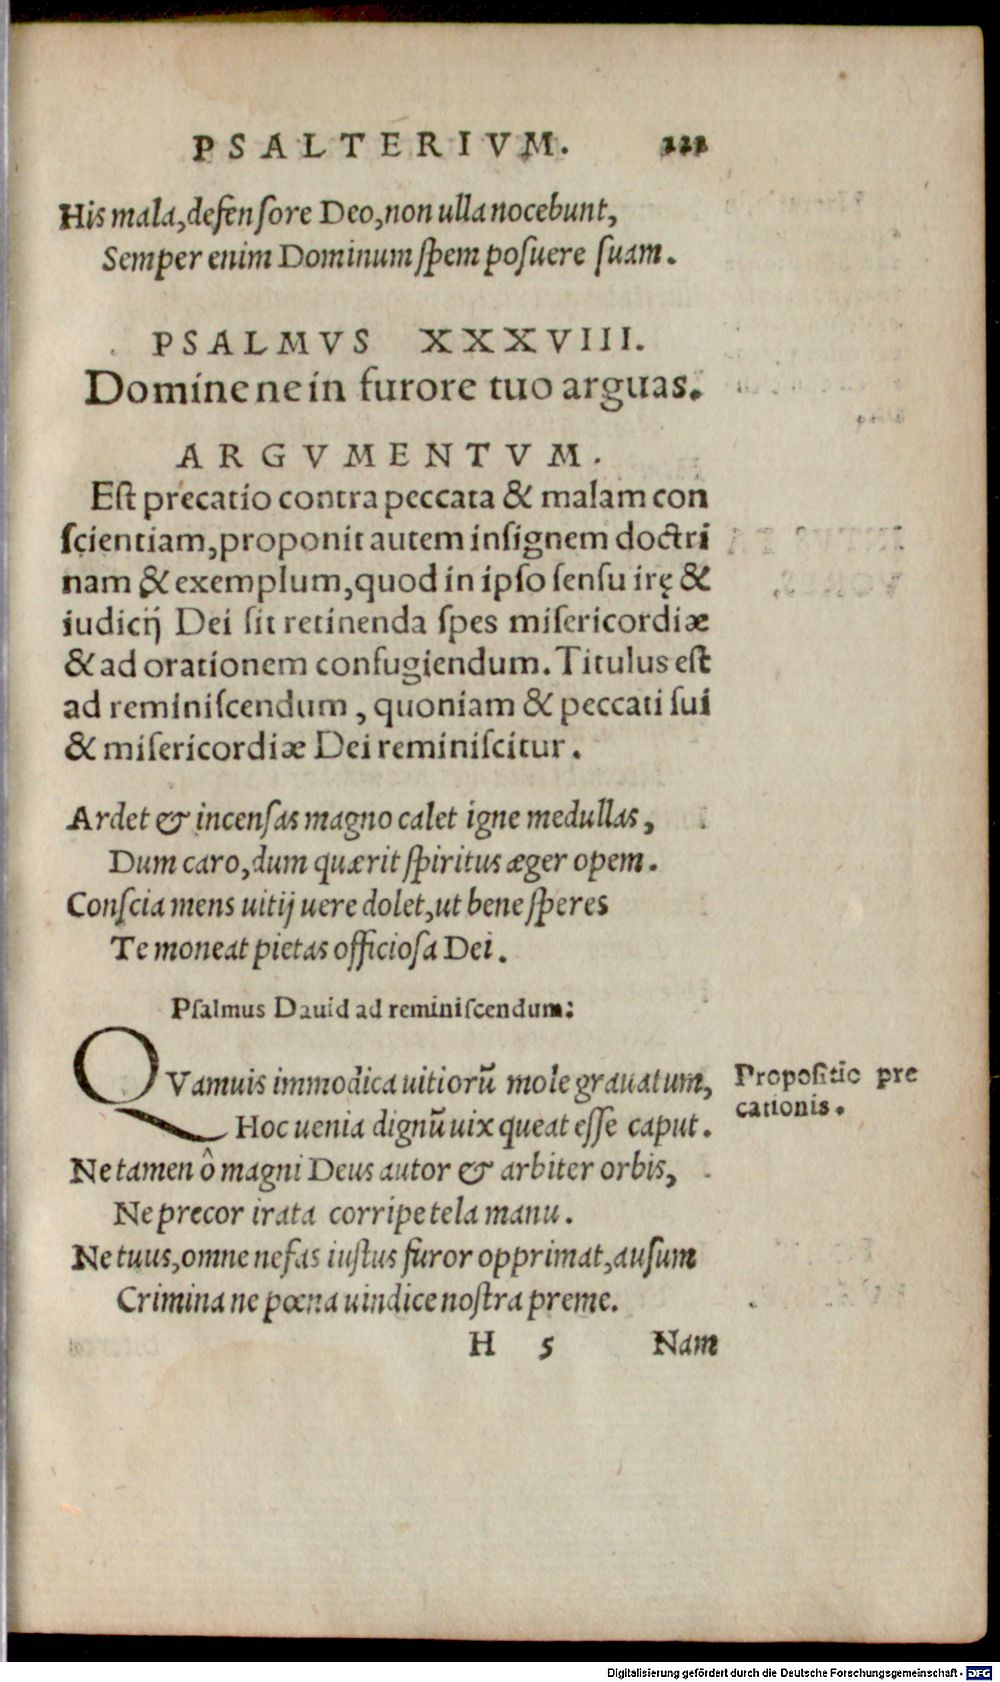 PSALTERIVM. 121
His mala, defensore Deo, non ulla nocebunt,
Semper enim Dominum spem posuere suam.
PSALMVS XXXVIII.
Domine ne in furore tuo arguas.
ARGVMENTVM.
Est precatio contra peccata & malam con
scientiam, proponit autem insignem doctri
nam & exemplum, quod in ipso sensu irę &
iudicij Dei sit retinenda spes misericordiæ
& ad orationem confugiendum. Titulus est
ad reminiscendum, quoniam & peccati sui
& misericordiæ Dei reminiscitur.
Ardet & incensas magno calet igne medullas,
Dum caro, dum quærit spiritus æger opem.
Conscia mens uitij uere dolet, ut bene speres
Te moneat pietas officiosa Dei.
Psalmus Dauid ad reminiscendum:
QVamuis immodica uitiorū mole grauatum,
Hoc uenia dignū uix queat esse caput.
Ne tamen ô magni Deus autor & arbiter orbis,
Ne precor irata corripe tela manu.
Ne tuus, omne nefas iustus furor opprimat, ausum
Crimina ne pœna uindice nostra preme.
H 5 Nam
Propositio pre
cationis.
Digitalisierung gefördert durch die Deutsche Forschungsgemeinschaft - DFG